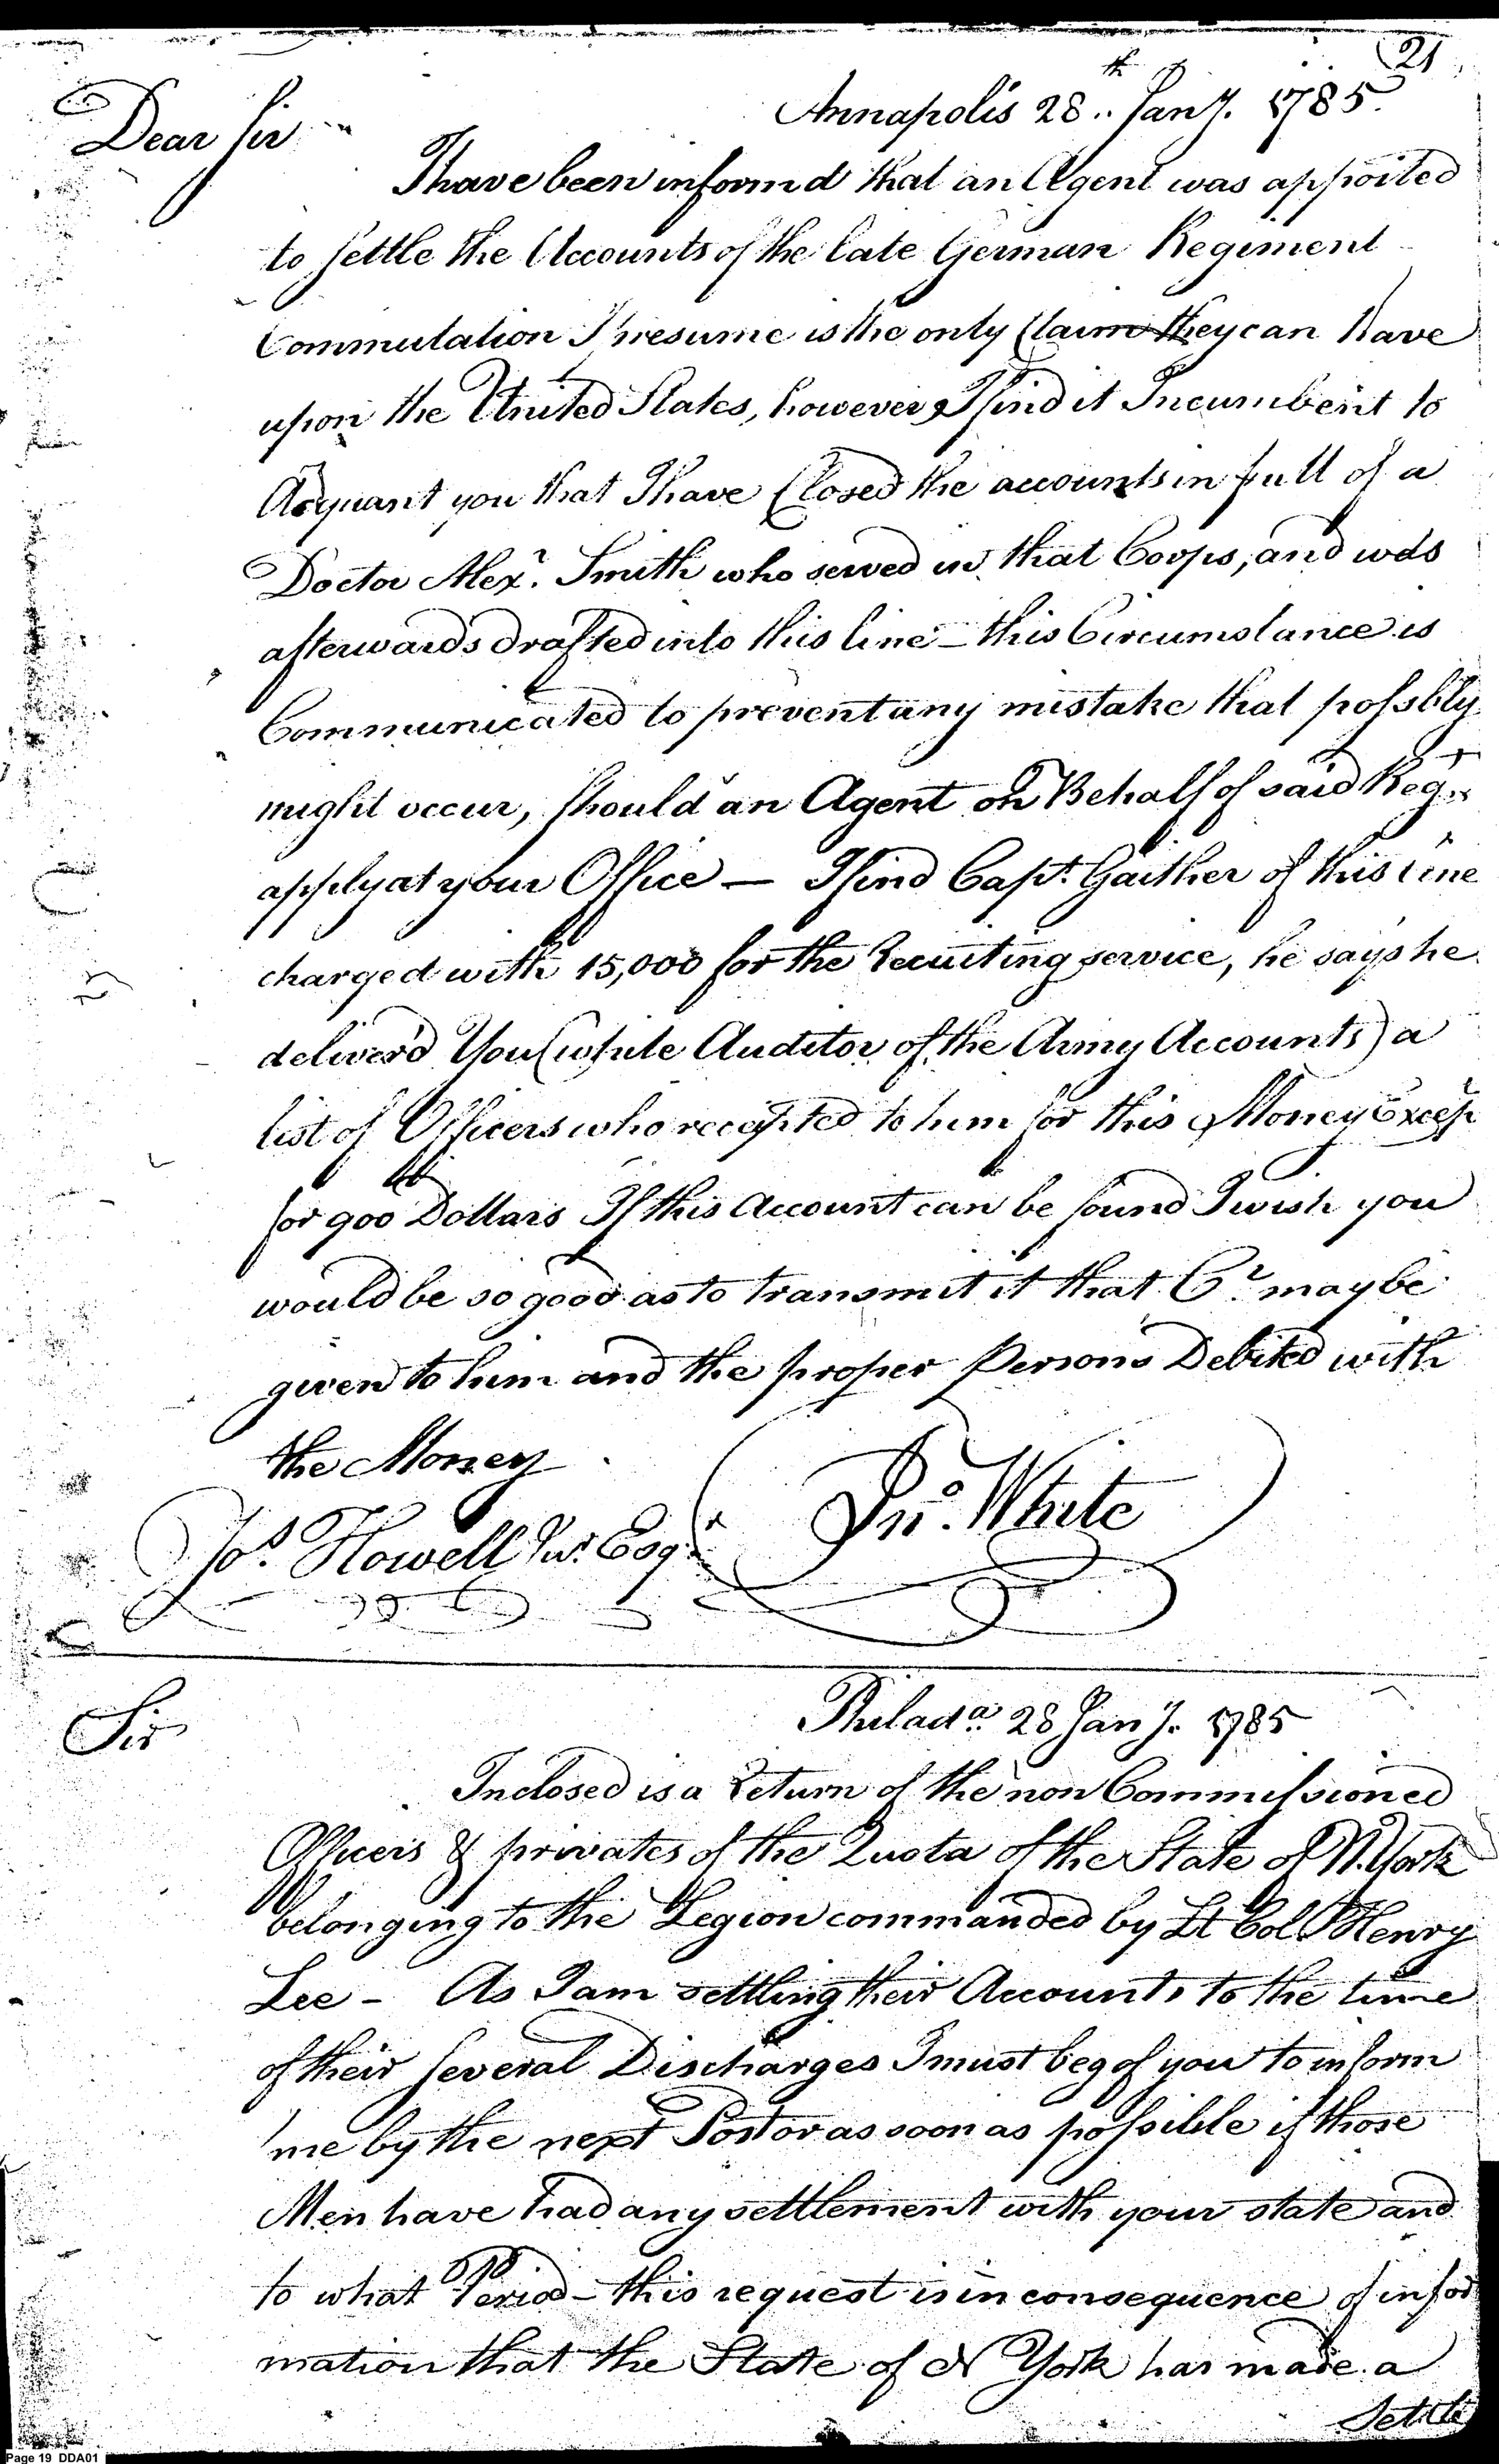 21
Annapolis 28th Jany. 1785.
Dear Sir
I have been informd that an Agent was appoited
to settle the Accounts of the late German Regiment
Commutation I presume is the only Claim they can have
upon the United States, however I find it Incumbent to
Acquant you that I have Closed the accounts in full of a
Doctor Alexr. Smith who served in that Corps, and was
afterwards drafted into this line – this Circumstance is
Communicated to prevent any mistake that possbly
might occur, should an Agent on Behalf of said Regt.
apply at your Office — I find Capt. Gaither of this line
charged with 15,000 for the Recuiting service, he says he
deliver'd You (while Auditor of the Army Accounts) a
list of Officers who recepted to him for this Money Excep
for 900 Dollars If this Account can be found I wish you
would be so good as to transmit it that Cr. may be
given to him and the proper Persons Debited with
the Money
Jno. White
Jos. Howell Jur. Esqr
Philada. 28 Jany. 1785
Sir
Inclosed is a Return of the non Commissioned
Officers & privates of the Quota of the State of N. York
belonging to the Legion commanded by Lt Col. Henry
Lee – As I am settling their Accounts to the time
of their several Discharges I must beg of you to inform
me by the next Post or as soon as possible if those
Men have had any settlement with your state and
to what Period – this request is in consequence of infor
mation that the State of N York has made a
Settle
Page 19 DDA01